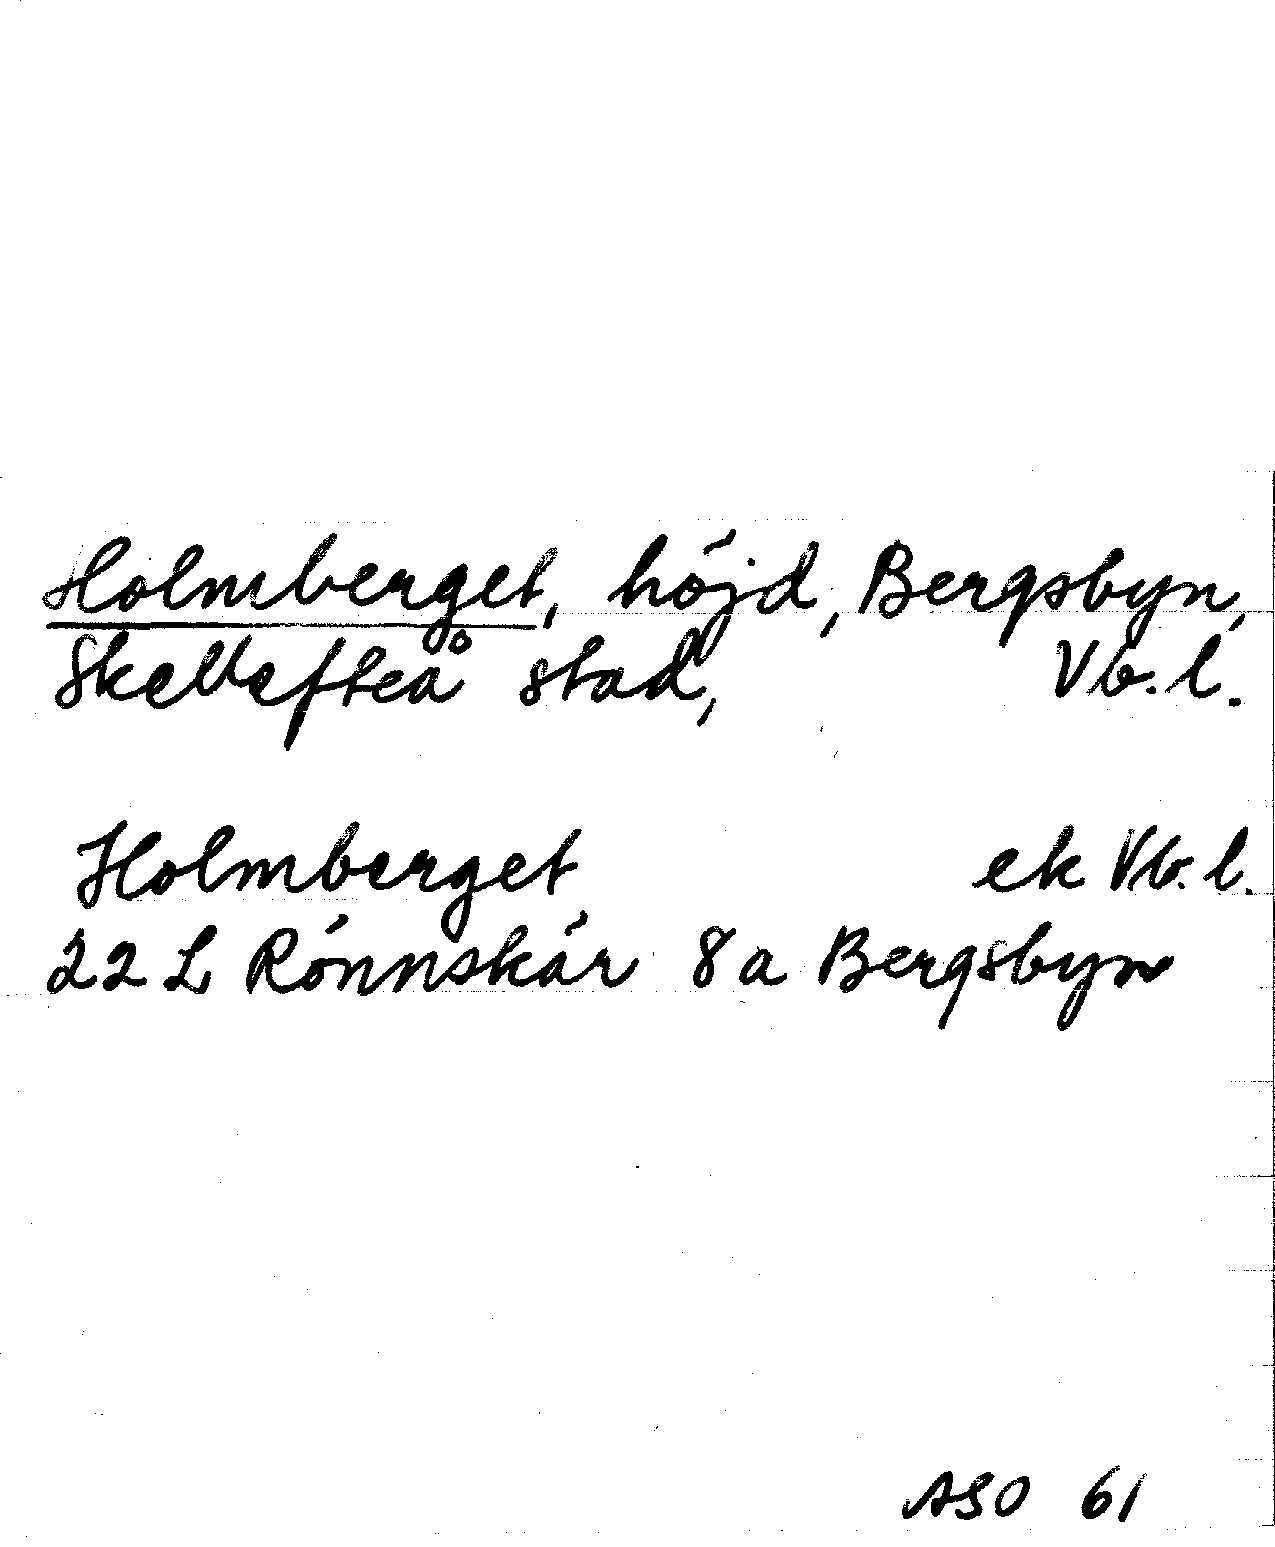 Holmberget, höjd, Bergsbyn,
Skellefteå stad, Vb.l.
Holmberget ek Vb.l.
22 L Rönnskär 8a Bergsbyn
ASO 61